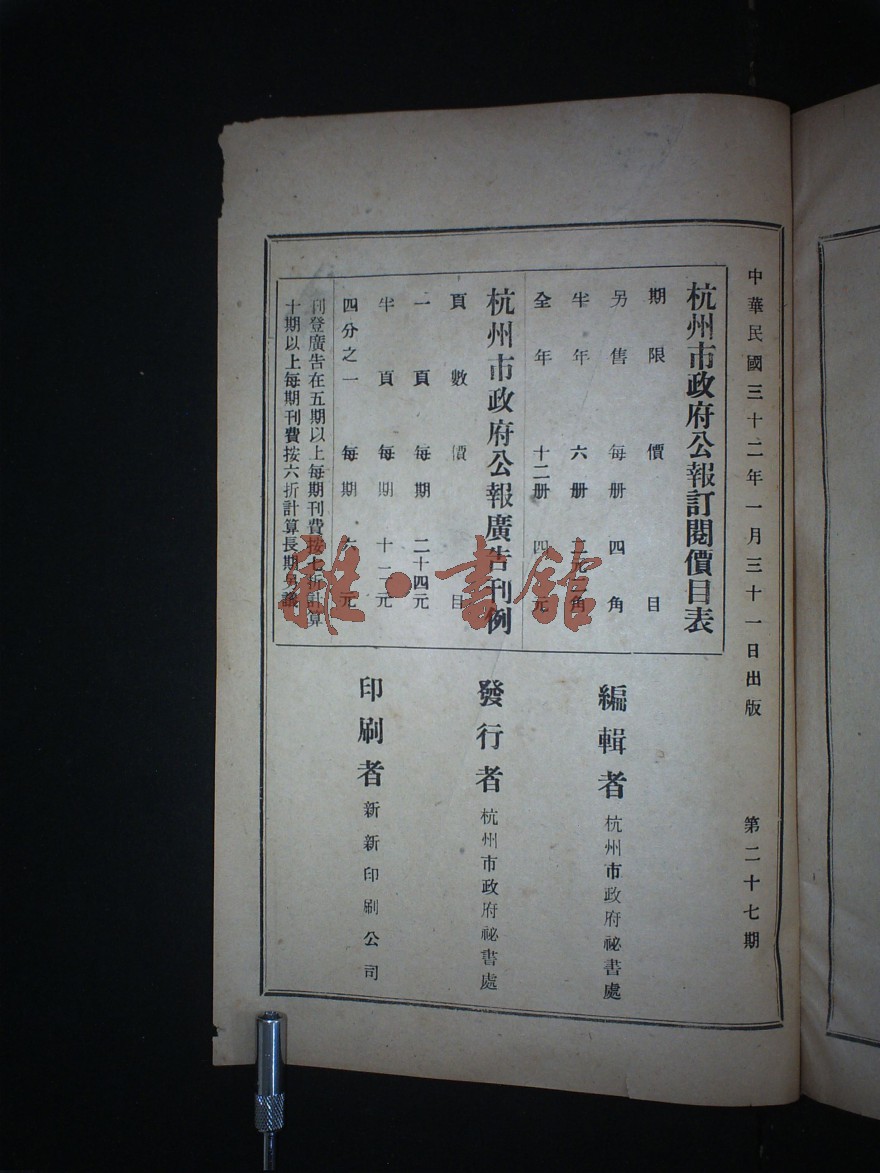 中華民國三十二年一月三十一日出版 第二十七期
杭州市政府公報訂閱價目表
期限價目
另售每册四角
半年六册二元二角
全年十二册四元
杭州市政府公報廣告刊例
頁數價目
一頁每期二十四元
半頁每期十二元
四分之一每期六元
刊登廣告在五期以上每期刊費按七折計算
十期以上每期刊費按六折計算長期另議
編輯者 杭州市政府祕書處
發行者 杭州市政府祕書處
印刷者 新新印刷公司
雜·書館